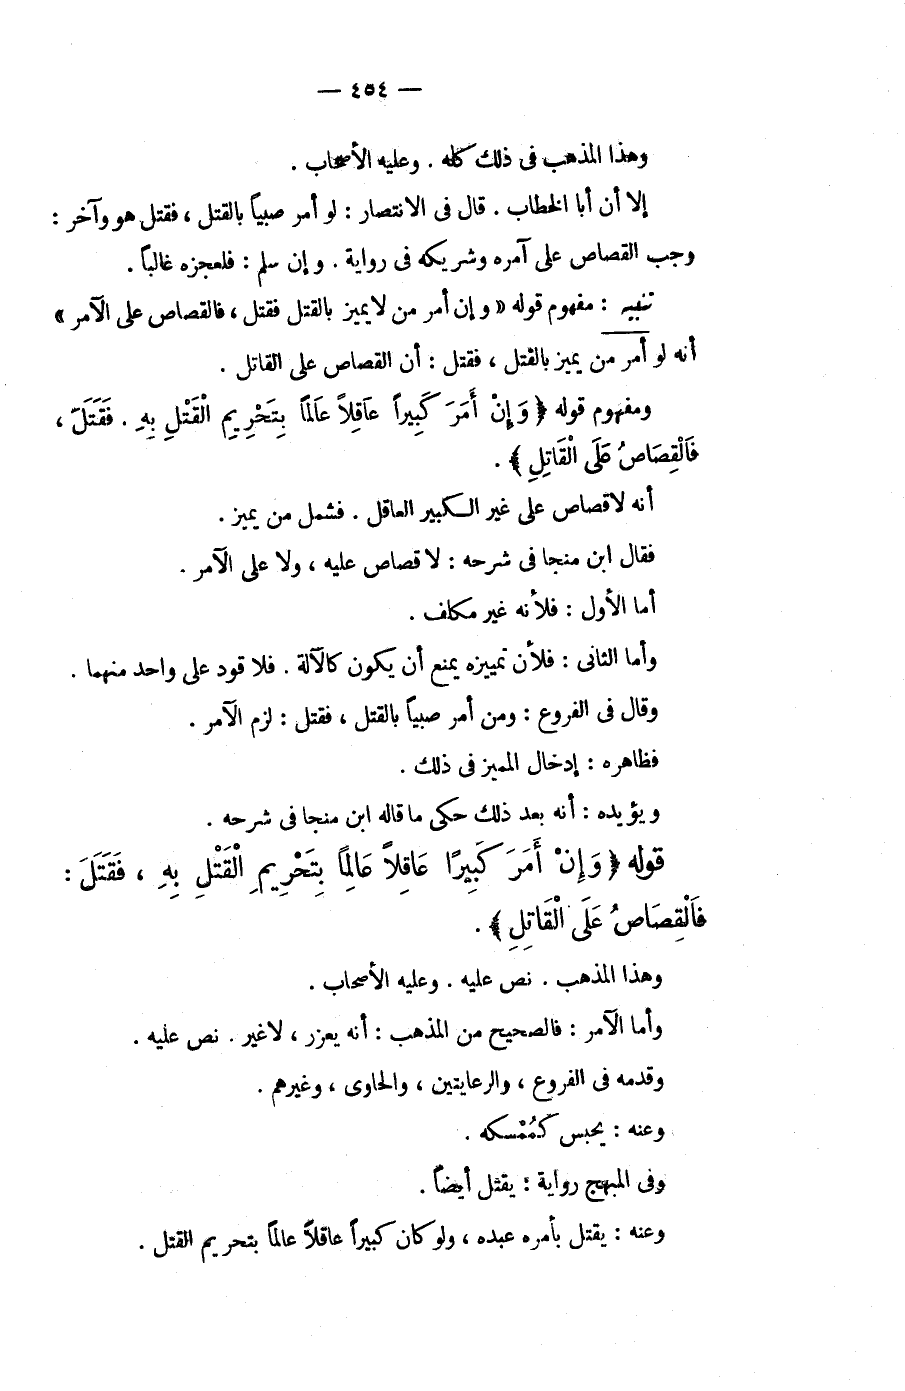 — ٤٥٤ —
وهذا المذهب فى ذلك كله . وعليه الأصحاب .
إلا أن أبا الخطاب . قال فى الانتصار : لو أمر صبياً بالقتل ، فقتل هو وآخر :
وجب القصاص على آمره وشريكه فى رواية . وإن سلم : فلعجزه غالباً .
تنبيه : مفهوم قوله « وإن أمر من لا يميز بالقتل فقتل ، فالقصاص على الآمر »
أنه لو أمر من يميز بالقتل ، فقتل : أن القصاص على القاتل .
ومفهوم قوله ﴿ وَإِنْ أَمَرَ كَبِيراً عَاقِلاً عَالِمًا بِتَحْرِيمِ الْقَتْلِ بِهِ . فَقَتَلَ ،
فَالْقِصَاصُ عَلَى الْقَاتِلِ ﴾ .
أنه لا قصاص على غير الكبير العاقل . فشمل من يميز .
فقال ابن منجا فى شرحه : لا قصاص عليه ، ولا على الآمر .
أما الأول : فلأنه غير مكلف .
وأما الثانى : فلأن تمييزه يمنع أن يكون كالآلة . فلا قود على واحد منهما .
وقال فى الفروع : ومن أمر صبياً بالقتل ، فقتل : لزم الآمر .
فظاهره : إدخال المميز فى ذلك .
ويؤيده : أنه بعد ذلك حكى ما قاله ابن منجا فى شرحه .
قوله ﴿ وَإِنْ أَمَرَ كَبِيرًا عَاقِلاً عَالِمًا بِتَحْرِيمِ الْقَتْلِ بِهِ ، فَقَتَلَ :
فَالْقِصَاصُ عَلَى الْقَاتِلِ ﴾ .
وهذا المذهب . نص عليه . وعليه الأصحاب .
وأما الآمر : فالصحيح من المذهب : أنه يعزر ، لا غير . نص عليه .
وقدمه فى الفروع ، والرعايتين ، والحاوى ، وغيرهم .
وعنه : يحبس كَمُمْسكه .
وفى المبهج رواية : يقتل أيضاً .
وعنه : يقتل بأمره عبده ، ولو كان كبيراً عاقلاً عالمًا بتحريم القتل .